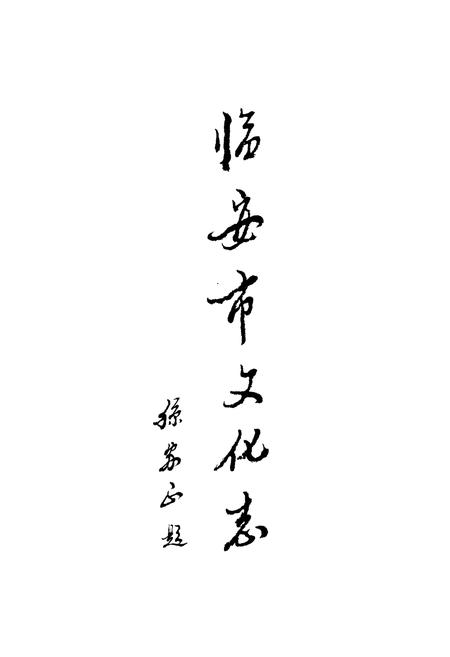 临安市文化志
孙家正题